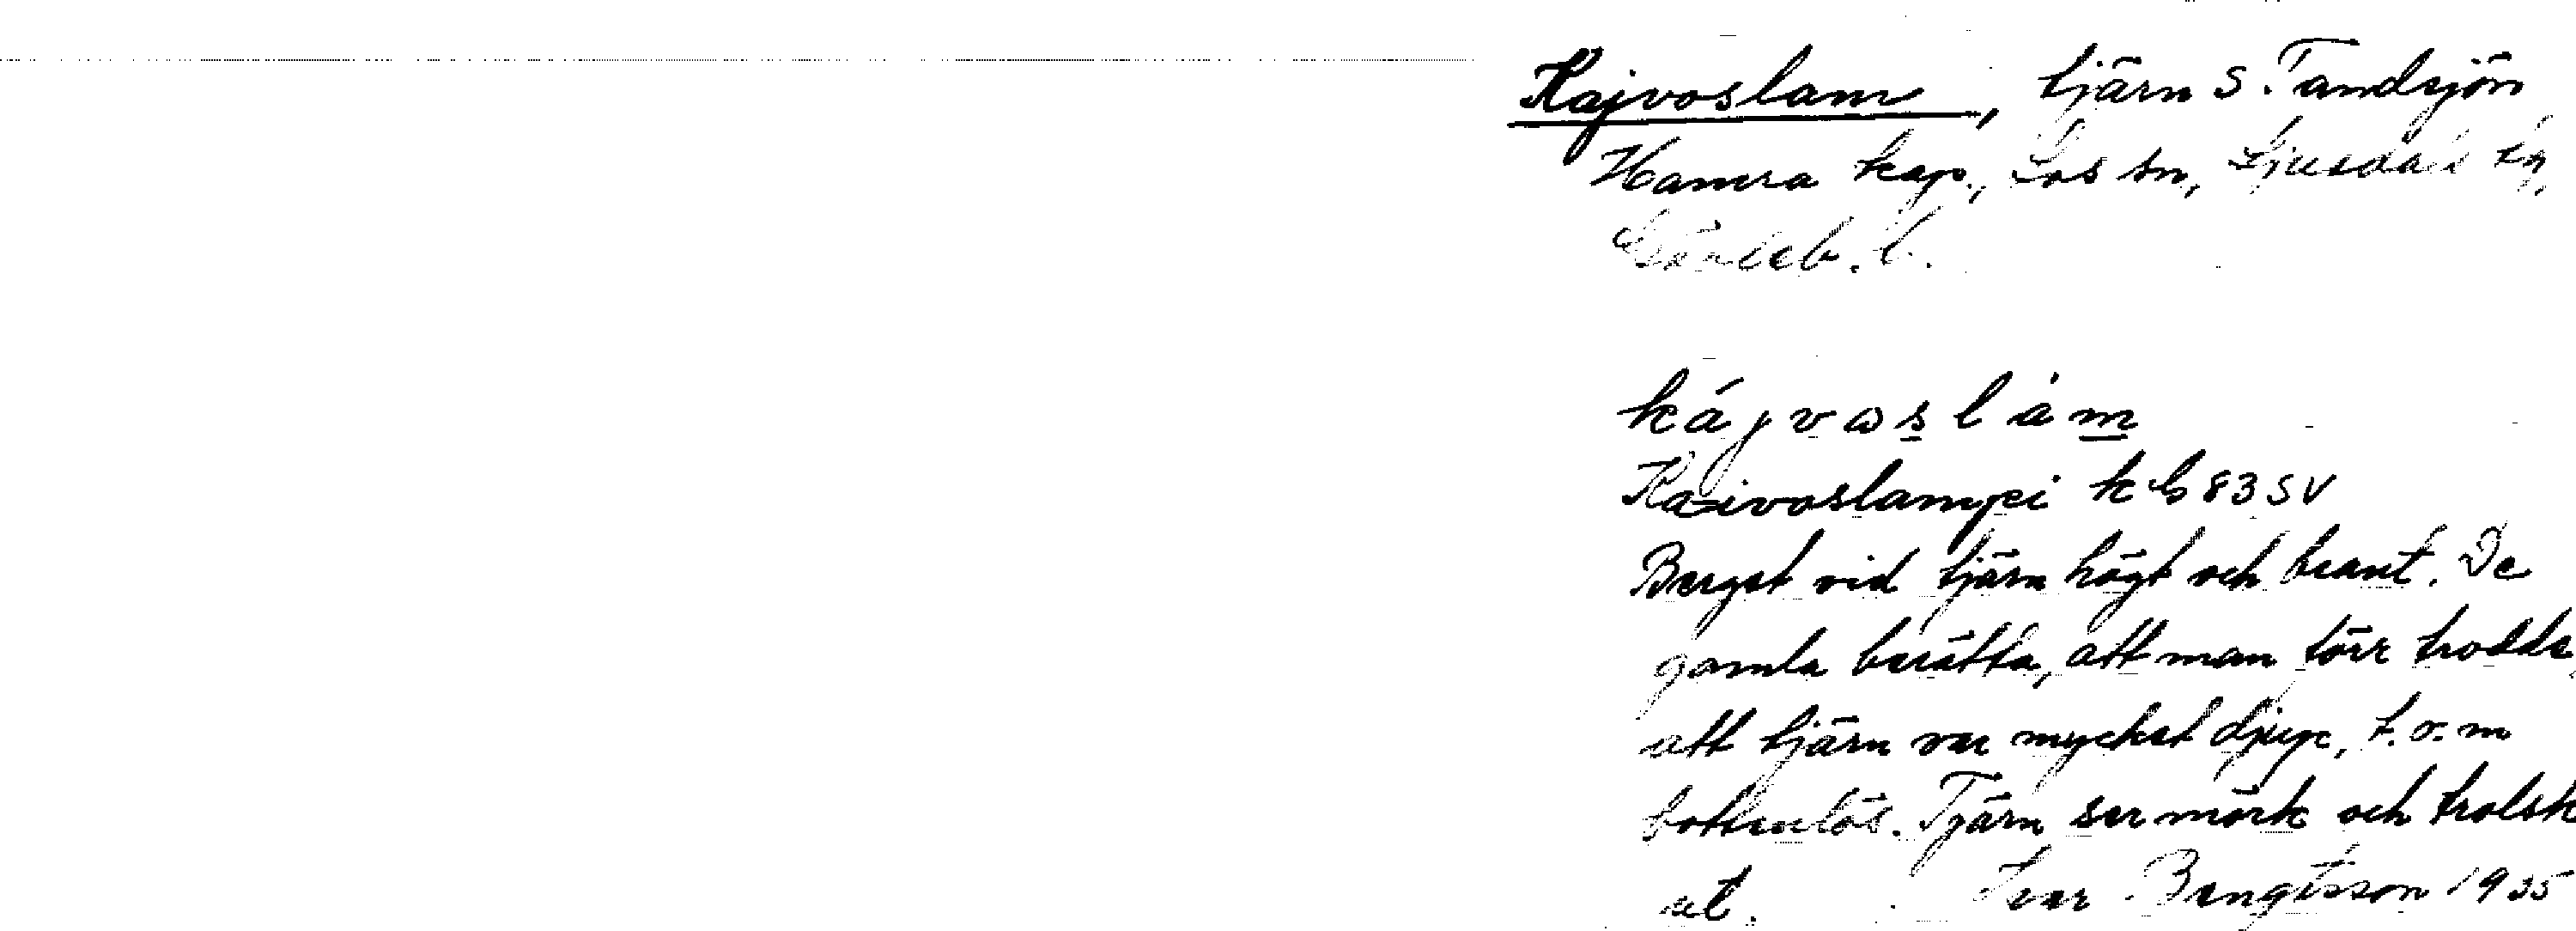 Kajvoslam, tjärn S. Tandsjön
Hamra kap., Los sn, Ljusdals tg,
Gävleb. l.
kájvωslàm
Kaivoslampi kb 83 SV
Berget vid tjärn högt och brant. De
gamla berätta, att man förr trodde,
att tjärn var mycket djup, t.o.m
bottenlös. Tjärn ser mörk och trolsk
ut. Ivar Bengtsson 1935